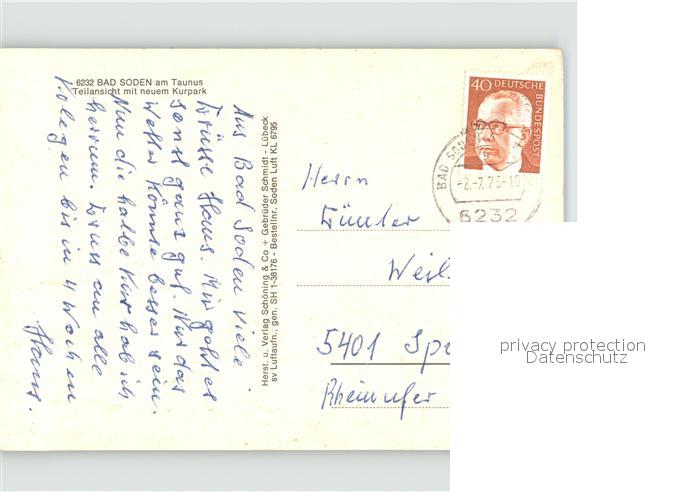 6232 BAD SODEN am Taunus
Teilansicht mit neuem Kurpark
Aus Bad Soden viele
Grüsse Hans. Mir geht es
sonst ganz gut. Nur das
Wetter könnte besser sein.
Nun die halbe Kur hab ich
herum. Gruss an alle
Kolegen bis in 4 Wochen
Hans.
Herst. u. Verlag Schöning & Co + Gebrüder Schmidt - Lübeck
sv Luftaufn., gen. SH 1-38176 - Bestellnr. Soden Luft KL 6795
40 DEUTSCHE
BUNDESPOST
BAD SO
-2.-7.75-10
6232
Herrn
Günter
Weil
5401 Sp
Rheinufer
privacy protection
Datenschutz